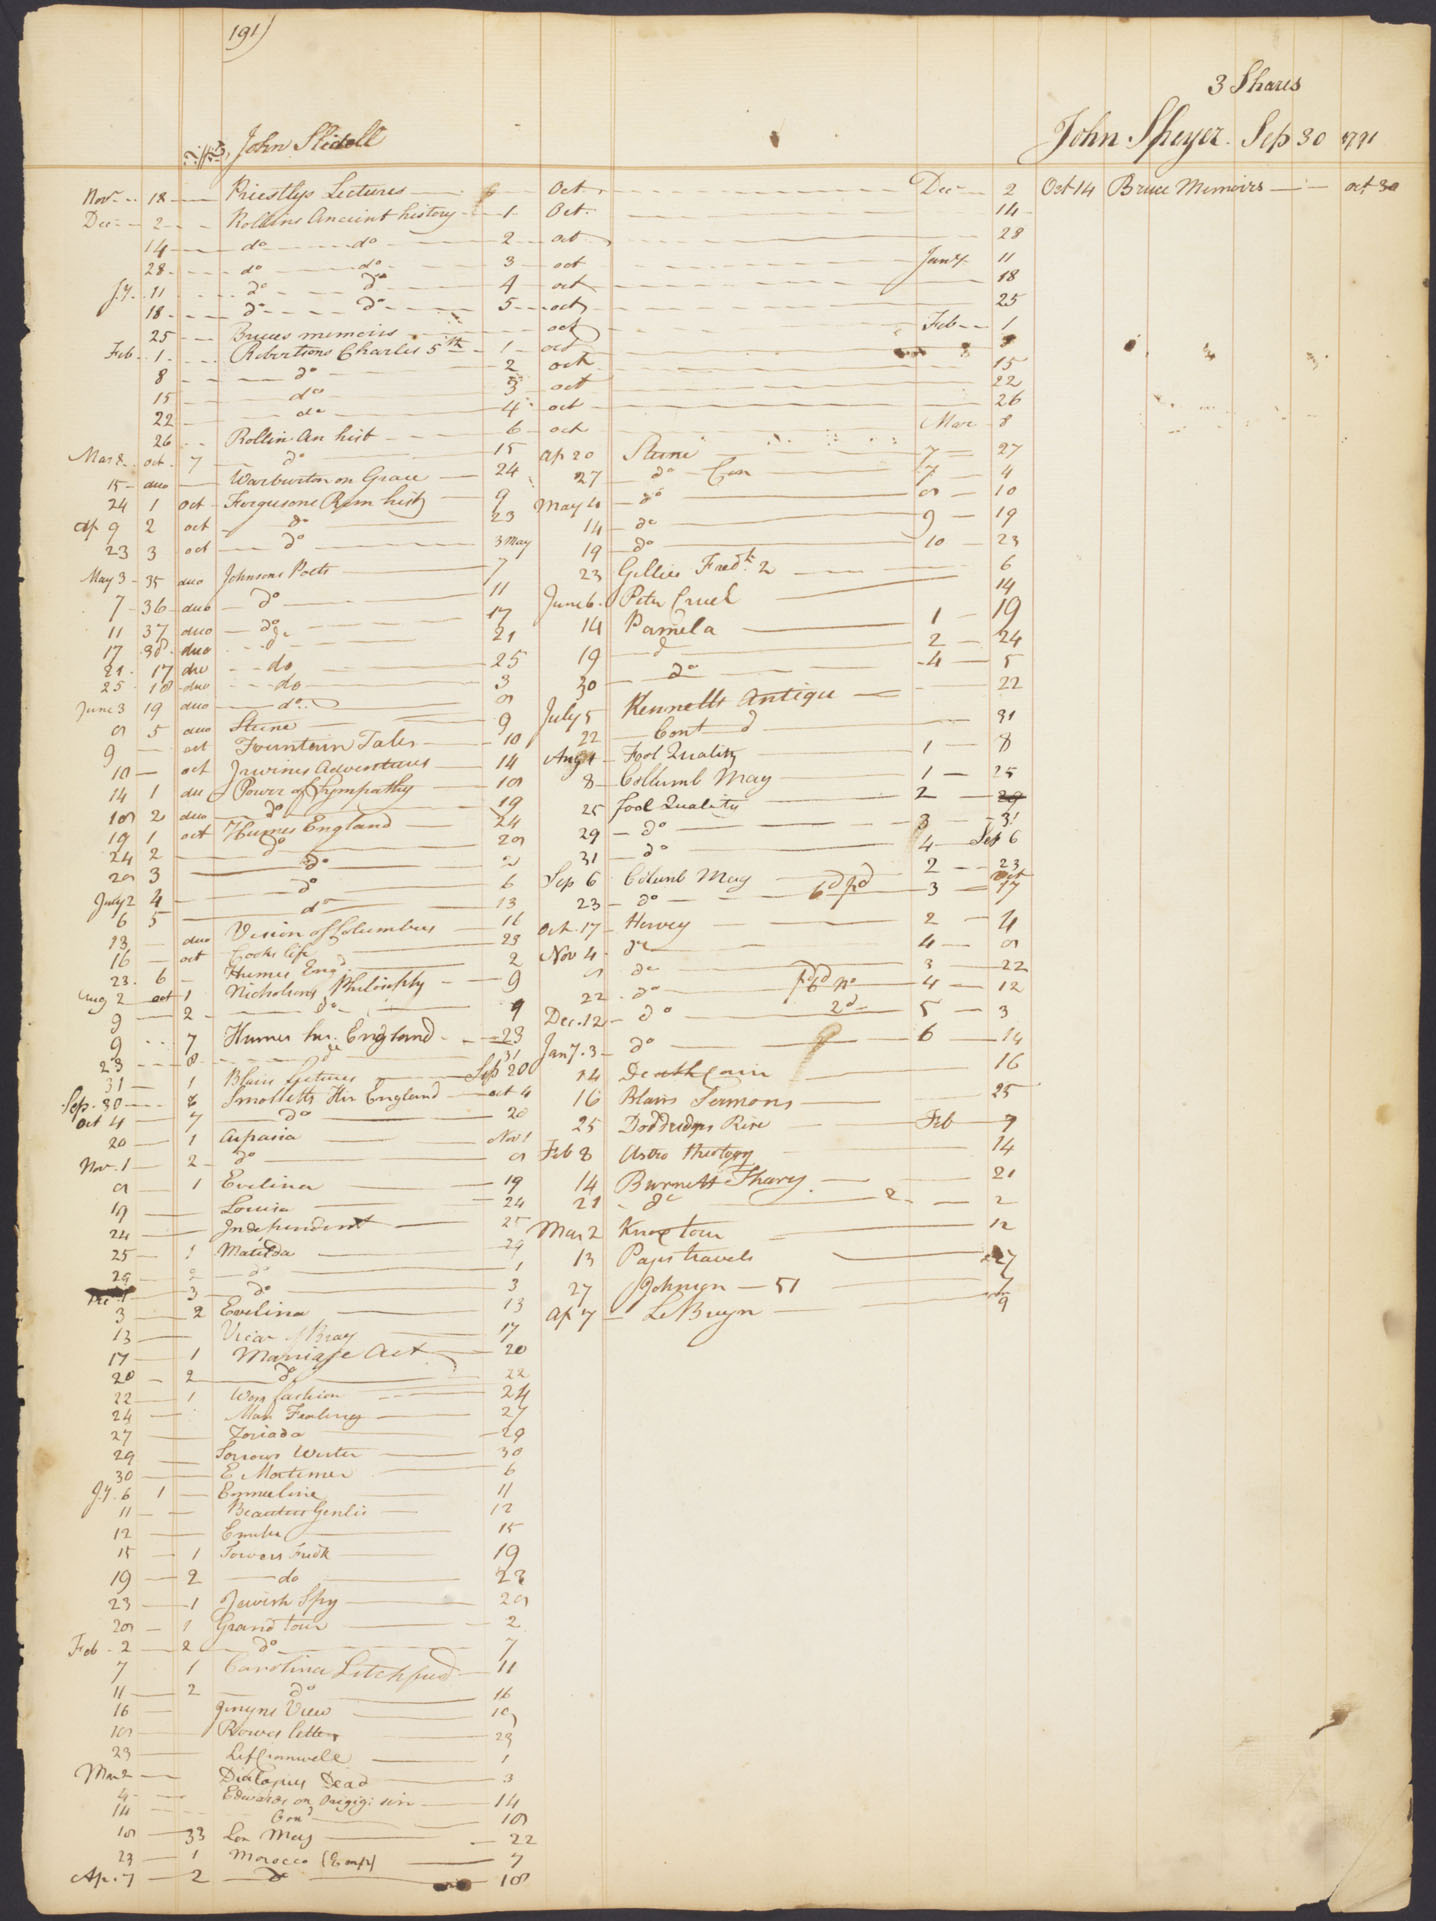 191)
3 Shares
John Slidell
John Speyer. Sep 30 1791
Nov 18 Priestlys Lectures Oct Dec 2
Oct 14 Bruce Memoirs oct 30
Dec 2 Rollins Ancient history 1 Oct 14
14 do do 2 oct 28
28 do do 3 oct Jany 11
Jy 11 do do 4 oct 18
18 do do 5 oct 25
25 Bruces memoirs oct Feb 1
Feb 1 Robertsons Charles 5th 1 oct 8
8 do 2 oct 15
15 do 3 oct 22
22 do 4 oct 26
26 Rollin An hist 6 oct Mar 8
Mar 8 oct 7 do 15
15 duo Warburton on Grace 24
24 1 oct Fergusons Rom hist 9
Ap 9 2 oct do 23
23 3 oct do 3 May
May 3 35 duo Johnsons Poets 7
7 36 duo do 11
11 37 duo do 17
17 38 duo do 21
21 17 duo do 25
25 18 duo do 3
June 3 19 duo do 8
8 5 duo Sterne 9
9 oct Fountain Tales 10
10 oct Irwines Adventures 14
14 1 duo Power of Sympathy 18
18 2 duo do 19
19 1 oct Humes England 24
24 2 do 28
28 3 do 2
July 2 4 do 6
6 5 do 13
13 duo Vision of Columbus 16
16 oct Cooks life 23
23 6 Humes Engd 2
Aug 2 oct 1 Nicholsons Philosophy 9
9 2 do 9
9 7 Humes his. England 23
23 8 do 31
31 1 Blairs Lectures Sep 20
Sep. 30 8 Smolletts His England oct 4
oct 4 7 do 20
20 1 Aspasia Nov 1
Nov. 1 2 do 8
8 1 Evelina 19
19 Louisa 24
24 Independent 25
25 1 Matilda 29
29 2 do 1
Dec 1 3 do 3
3 2 Evelina 13
13 Vicar of Bray 17
17 1 Marriage Act 20
20 2 do 22
22 1 Wom fashion 24
24 Man Feelings 27
27 Zoriada 29
29 Sorrows Werter 30
30 E Mortimer 6
Jy. 6 1 Emmeline 11
11 Beauties Genlis 12
12 Emelia 15
15 1 Towers Fredk 19
19 2 do 23
23 1 Jewish Spy 28
28 1 Grand tour 2
Feb. 2 2 do 7
7 1 Carolina Litchfield 11
11 2 do 16
16 Jenyns View 18
18 Rowes letters 23
23 Lif Cromwell 1
Mar 2 Dialogues Dead 3
4 Edwards on Origig: sin 14
14 Cond 18
18 33 Lon Mag 22
23 1 Morocco (Emp) 7
Ap. 7 2 do 18
Ap 20 Sterne 7 27
27 do Con 7 4
May 4 do 8 10
14 do 9 19
19 do 10 23
23 Gillies Fredk 2 6
June 6 Peter Cruel 14
14 Pamela 1 19
19 do 2 24
30 do 4 5
July 5 Kennetts Antique 22
22 Contd 31
Aug 1 Fool Quality 1 8
8 Collumb Mag 1 25
25 fool Quality 2 29
29 do 3 31
31 do 4 Sep 6
Sep 6 Columb Mag 2 23
23 do 6d pd 3 Oct 17
Oct. 17 Hervey 2 4
Nov 4 do 4 8
8 do 3 22
22 do 4 12
Dec. 12 do 2d 5 3
Jany. 3 do 6 14
14 Death Cain 16
16 Blairs Sermons 25
25 Doddridges Rise Feb 7
Feb 8 Astro theology 14
14 Burnetts Thary 21
21 do 2 2
Mar 2 Knox tour 12
13 Pages travels 27
27 Johnson 51 7
Ap 7 Le Bruyn 9